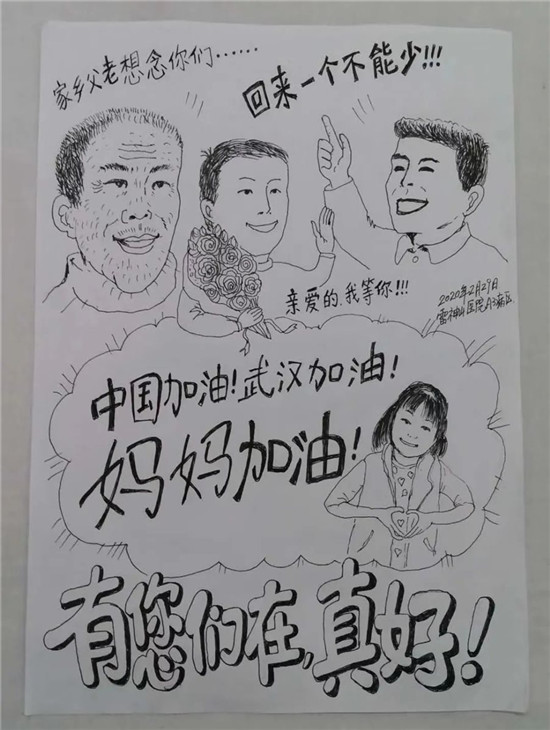 家乡父老想念你们……
回来一个不能少!!!
亲爱的,我等你!!!
2020年2月29日
雷神山医院A3病区
中国加油!武汉加油!
妈妈加油!
有您们在,真好!